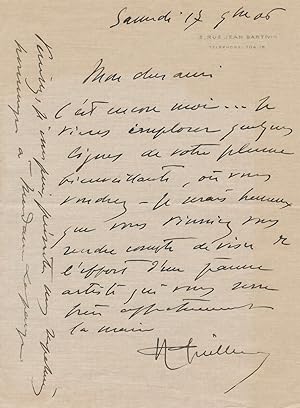 Samedi 17 9bre 06
5, RUE JEAN BART (VIe)
TÉLÉPHONE
Mon cher ami
C'est encore moi... Je
viens implorer quelques
lignes de votre plume
bienveillante, où vous
voudrez - Je serais heureux
que vous puissiez vous
rendre compte de visu de
l'effort d'un pauvre
artiste qui vous serre
bien affectueusement
la main
Puis-je présenter mes respectueux
hommages à Madame